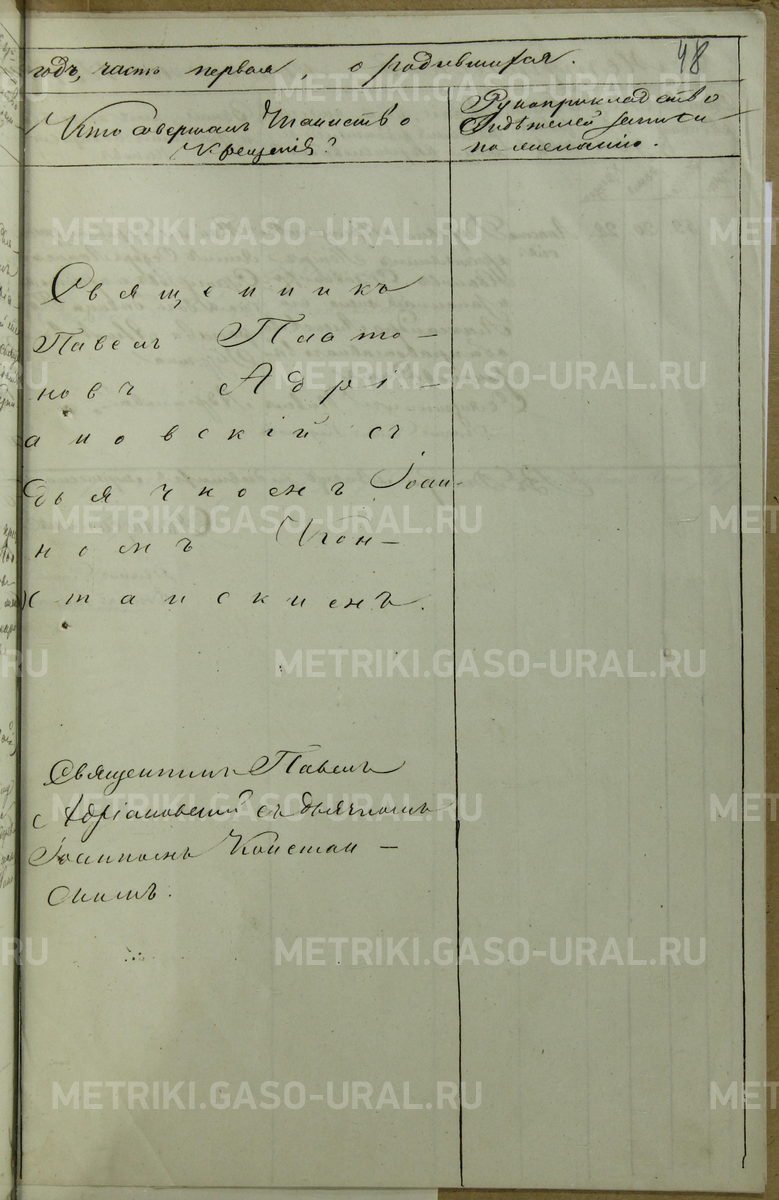 48
годъ, часть первая, о родившихся.
Кто совершалъ Таинство
Крещенія?
Рукоприкладство
свидѣтелей записи
по желанію.
Священникъ
Павелъ Плато-
новъ Адрі-
ановскій съ
дьячкомъ Іоан-
номъ Кон-
станскимъ.
Священникъ Павелъ
Адріановскій съ дьячкомъ
Іоанномъ Констан-
скимъ.
METRIKI.GASO-URAL.RU